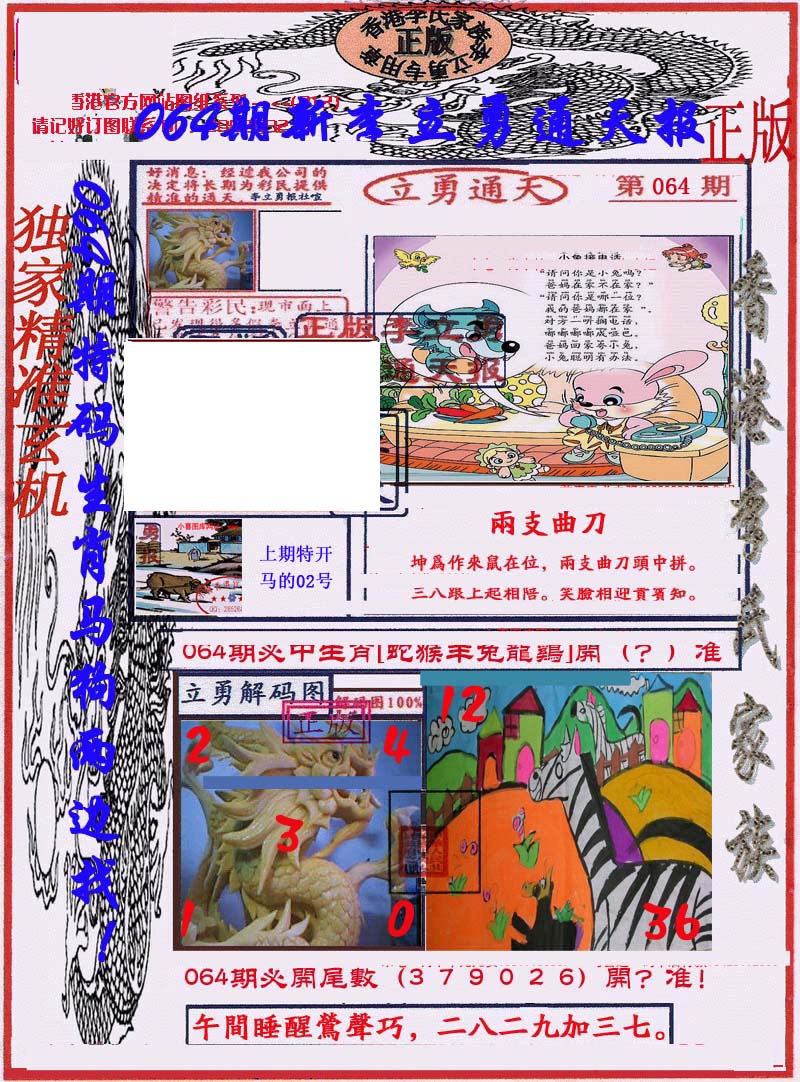 香港李氏家族
正版
李立勇专用章
香港官方网站图纸系列
064期新李立勇通天报
正版
好消息：经过我公司的
决定将长期为彩民提供
精准的通天。李立勇报社宣
立勇通天
第064期
独家精准玄机
064期特码生肖马狗两边找！
香港李氏家族
警告彩民:现市面上
小兔接电话
“请问你是小兔吗？
爸妈在家不在家？”
“请问你是哪一位？
我的爸妈都在家。”
对方一听搁电话，
嘟嘟嘟嘟成哑巴。
爸妈回家夸小兔，
小兔聪明有办法。
正版李立勇
通天报
小喜图库网
勇
报
上期特开
马的02号
兩支曲刀
坤爲作來鼠在位，兩支曲刀頭中拼。
三八跟上起相陪。笑臉相迎貴賓知。
064期必中生肖[蛇猴羊兔龍鷄]開（？）准
立勇解码图
解码图100%
正版
2
4
3
1
0
12
36
064期必開尾數（379026）開？准！
午間睡醒鶯聲巧，二八二九加三七。